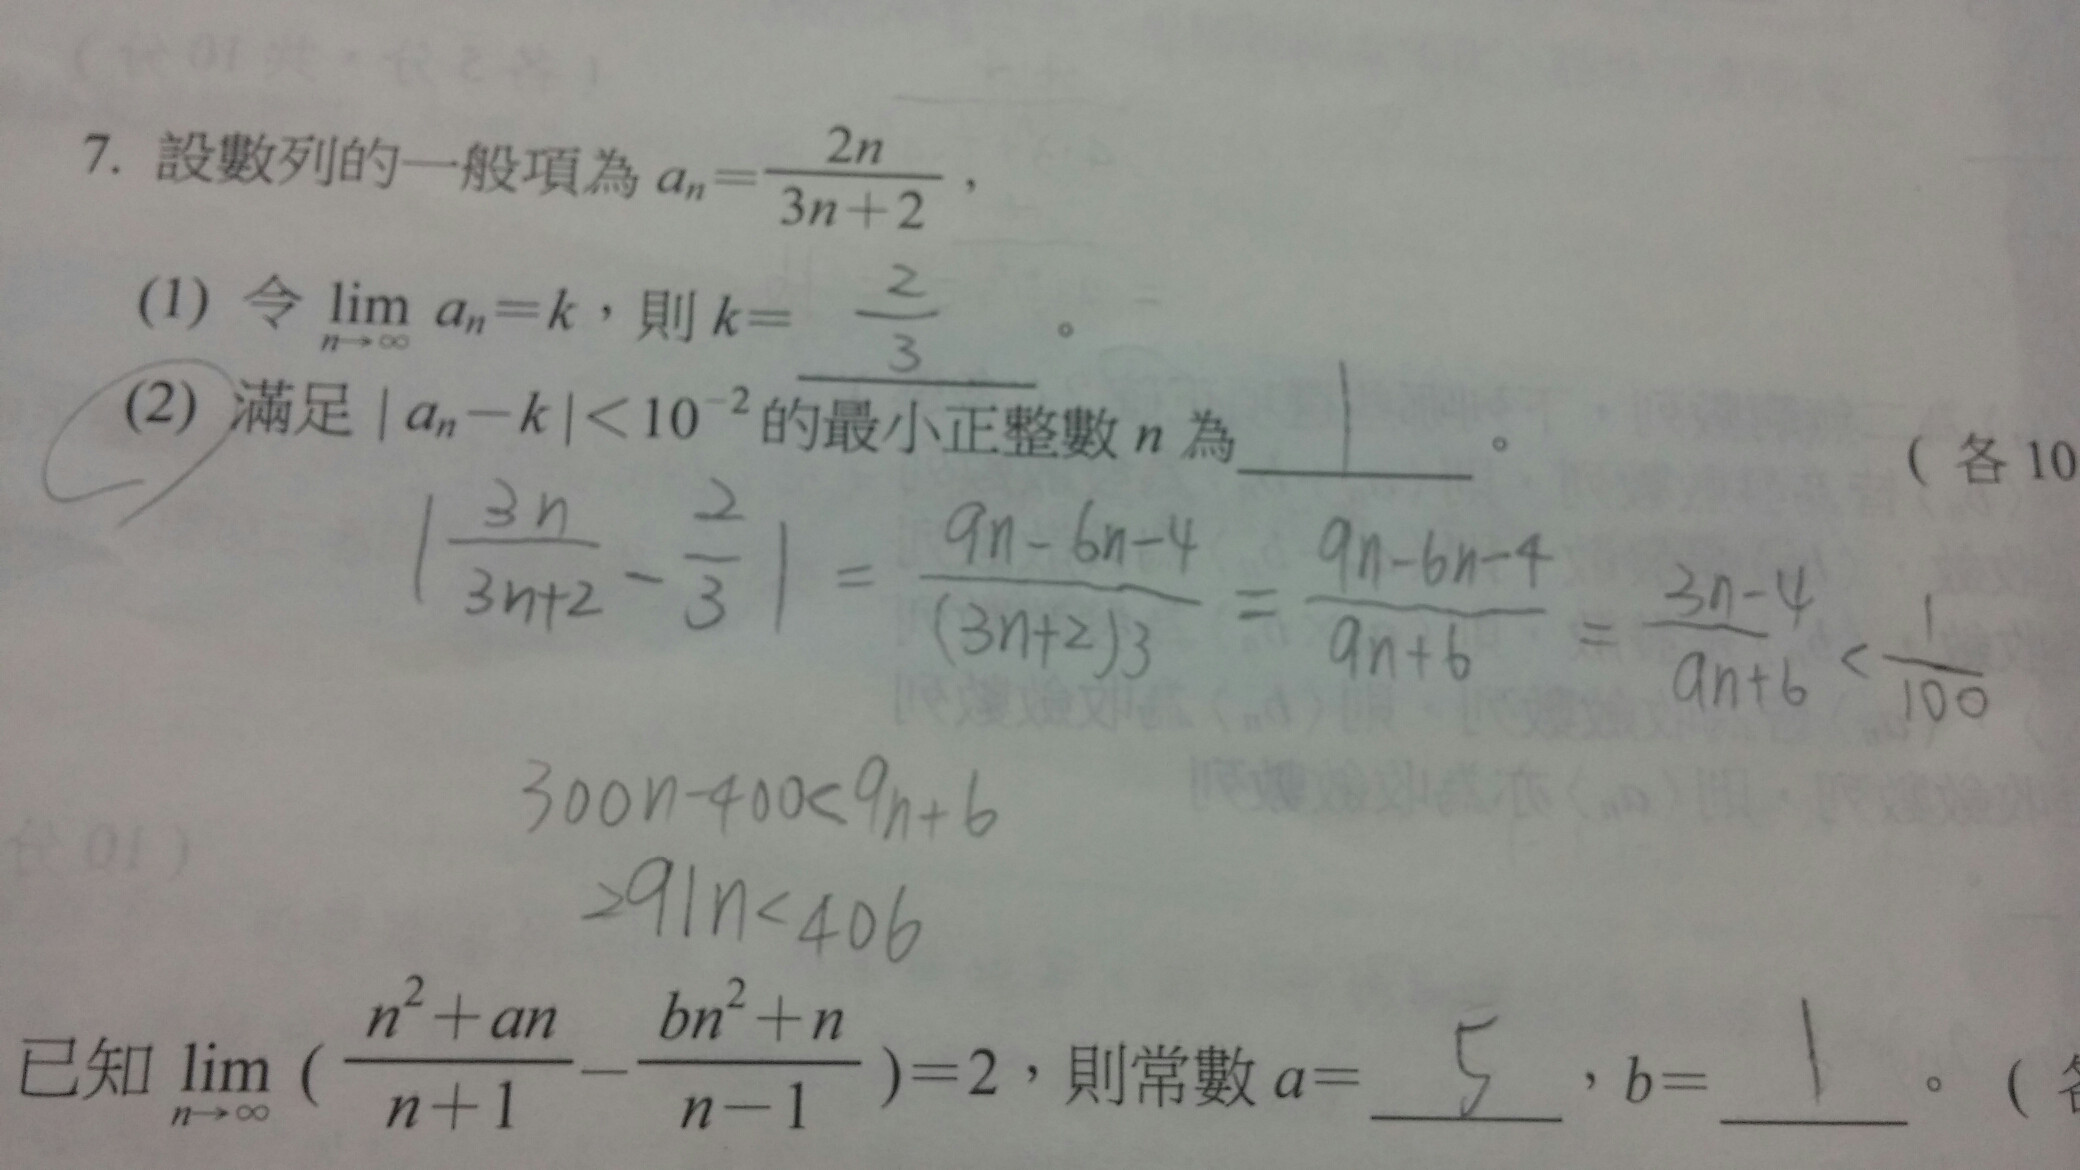 7. 設數列的一般項為 aₙ=2n/(3n+2)，
(1) 令 lim n→∞ aₙ=k，則 k= 2/3 。
(2) 滿足 | aₙ−k |<10⁻² 的最小正整數 n 為 1 。 ( 各 10
| 3n/(3n+2) - 2/3 | = (9n-6n-4)/((3n+2)3) = (9n-6n-4)/(9n+6) = (3n-4)/(9n+6) < 1/100
300n-400<9n+6
291n<406
已知 lim n→∞ ( (n²+an)/(n+1) − (bn²+n)/(n−1) )=2，則常數 a= 5 ，b= 1 。 ( 各